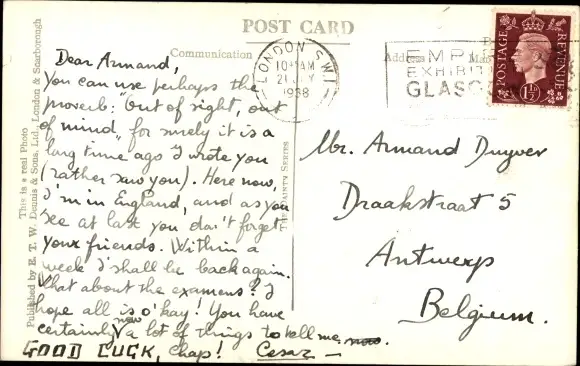 POST CARD
Communication
Address
LONDON S.W.1
10 15 AM
1938
EMPIRE
EXHIBIT
GLASG
POSTAGE
REVENUE
1½D
This is a real Photo
Published by E. T. W. Dennis & Sons, Ltd., London & Scarborough
THE DAINTY SERIES
Dear Armand,
You can use perhaps the
proverb: "Out of sight, out
of mind", for surely it is a
long time ago I wrote you
(rather saw you). Here now,
I'm in England, and as you
see at last you don't forget
your friends. Within a
week I shall be back again.
What about the examens? I
hope all is o'kay! You have
certainly now a lot of things to tell me, now.
GOOD LUCK, Chap! Cesar —
Mr. Armand Duyver
Draakstraat 5
Antwerps
Belgium.